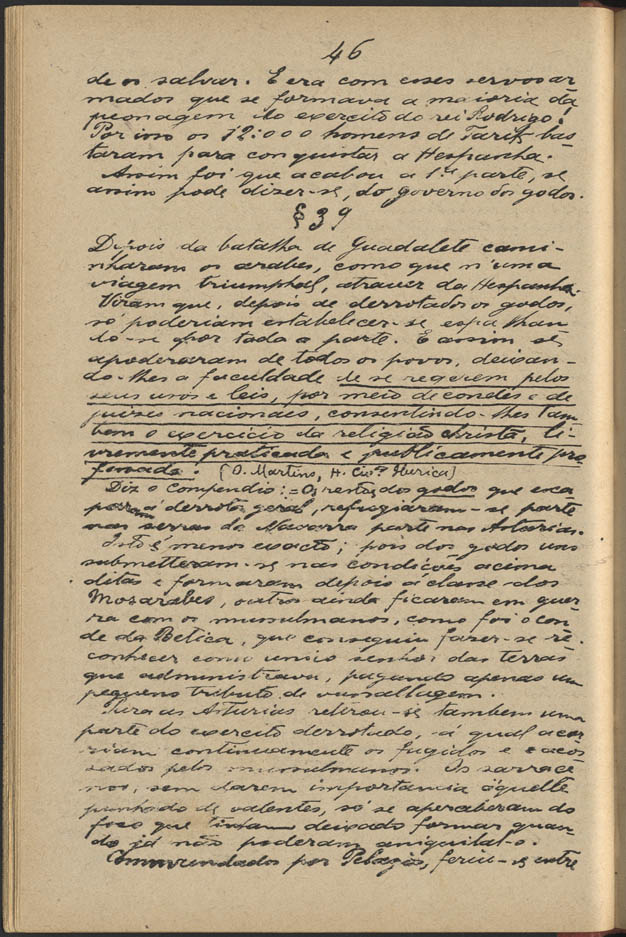 46
de os salvar. E era com esses servos ar
mados que se formava a maioria da
peonagem do exercito do rei Rodrigo!
Por isso os 12:000 homens de Tarik bas
taram para conquistar a Hespanha.
Assim foi que acabou a 1.ª parte, se
assim pode dizer-se, do governo dos godos.
§ 39
Depois da batalha de Guadalete cami-
nharam os arabes, como que n'uma
viagem triumphal, atravez da Hespanha.
Viram que, depois de derrotados os godos,
só poderiam estabelecer-se espalhan
do-se por toda a parte. E assim se
apoderaram de todos os povos, deixan-
do-lhes a faculdade de se regerem pelos
seus usos e leis, por meio de condes e de
juizes nacionaes, consentindo-lhes tam
bem o exercicio da religião christã, li-
vremente praticada e publicamente pro
fessada. (O. Martins, H. Civ. Iberica)
Diz o Compendio: = Os restos dos godos que esca
param á derrota geral, refugiaram-se parte
nas serras de Navarra parte nas Asturias.
Isto é menos exacto; pois dos godos uns
submetteram-se nas condições acima
ditas e formaram depois a classe dos
Mosarabes, outros ainda ficaram em guer
ra com os musulmanos, como foi o con
de da Betica, que conseguiu fazer-se re-
conhecer como unico senhor das terras
que administrava, pagando apenas um
pequeno tributo de vassallagem.
Para as Asturias retirou-se tambem uma
parte do exercito derrotado, á qual acor
riam continuamente os fugidos e acos
sados pelos musulmanos. Os sarrace
nos, sem darem importancia áquelle
punhado de valentes, só se aperceberam do
foco que tinham deixado formar quan-
do já não poderam aniquilal-o.
Commandados por Pelagio, feriu-se entre